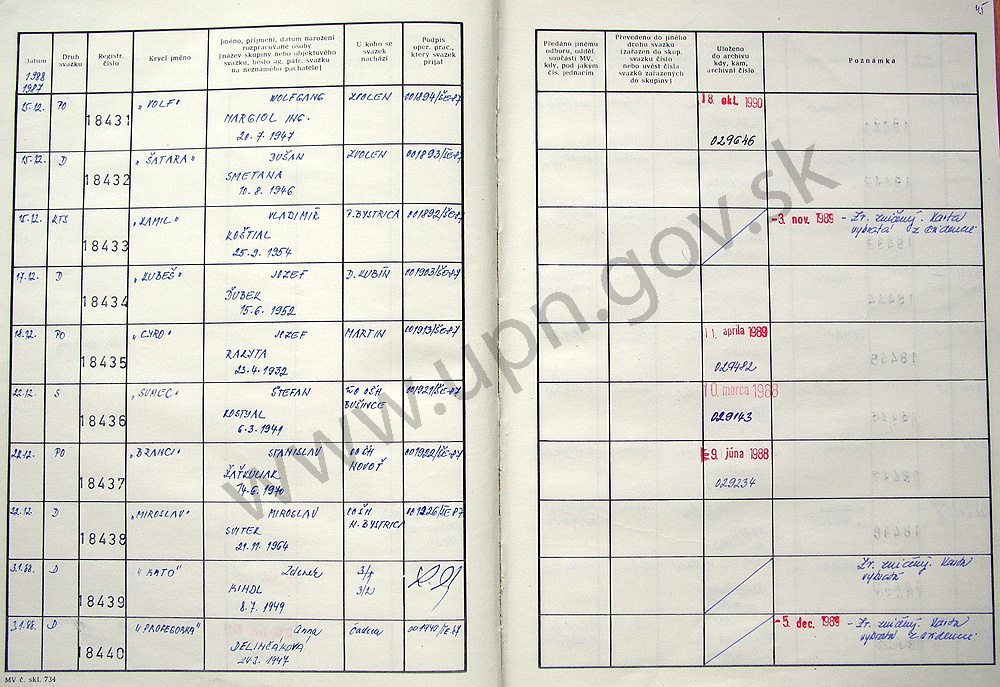 45
Datum
Druh svazku
Registr. číslo
Krycí jméno
Jméno, příjmení, datum narození
rozpracované osoby
(název skupiny nebo objektového
svazku, heslo ag. pátr. svazku
na neznámého pachatele)
U koho se
svazek
nachází
Podpis
oper. prac.,
který svazek
přijal
Předáno jinému
odboru, odděl.
součásti MV,
kdy, pod jakým
čís. jednacím
Převedeno do jiného
druhu svazku
(zařazen do skup.
svazku číslo
nebo uvést čísla
svazků zařazených
do skupiny)
Uloženo
do archivu
kdy, kam,
archivní číslo
Poznámka
1988
1987
15.12. PO 18431 "VOLF" WOLFGANG ZVOLEN 001894/ŠE-87 18. okt. 1990
MARGIOL ING.
20.7.1947 029646
15.12. D 18432 "ŠATARA" DUŠAN ZVOLEN 001893/ŠE-87
SMETANA
10.8.1946
15.12. KTS 18433 "KAMIL" VLADIMÍR P.BYSTRICA 001892/ŠE-87 -3. nov. 1989 - Zr. zničený. Karta
KOŠTIAL vybratá z evidencie
25.9.1954
17.12. D 18434 "KUBEŠ" JOZEF D. KUBÍN 001903/ŠE-87
ĎUBEK
15.6.1952
18435 PO "CYRO" JOZEF MARTIN 001913/ŠE-87 11. apríla 1989
RAKYTA
23.4.1932 029482
22.12. S 18436 "SUMEC" ŠTEFAN OŠH 001921/ŠE-87 10. marca 1988
KOSTYAL BUŠINCE
6.3.1941 029143
22.12. PO 18437 "BRANCI" STANISLAV OOŠH 001922/ŠE-87 9. júna 1988
ŽATKULIAK NOVOŤ
14.6.1970 029234
22.12. D 18438 "MIROSLAV" MIROSLAV OOŠH 001926/ŠE-87
SVITEK N.BYSTRICA
21.11.1964
3.1.88. D 18439 "KATO" Zdenek Zr. zničený. Karta
KINDL vybratá
8.7.1949
3.1.88. D 18440 "PROFESORKA" Anna Čadca ŠE-87 -5. dec. 1989 - Zr. zničený. Karta
DELINČÁKOVA vybratá z evidencie
24.3.1947
MV č. skl. 734
www.upn.gov.sk